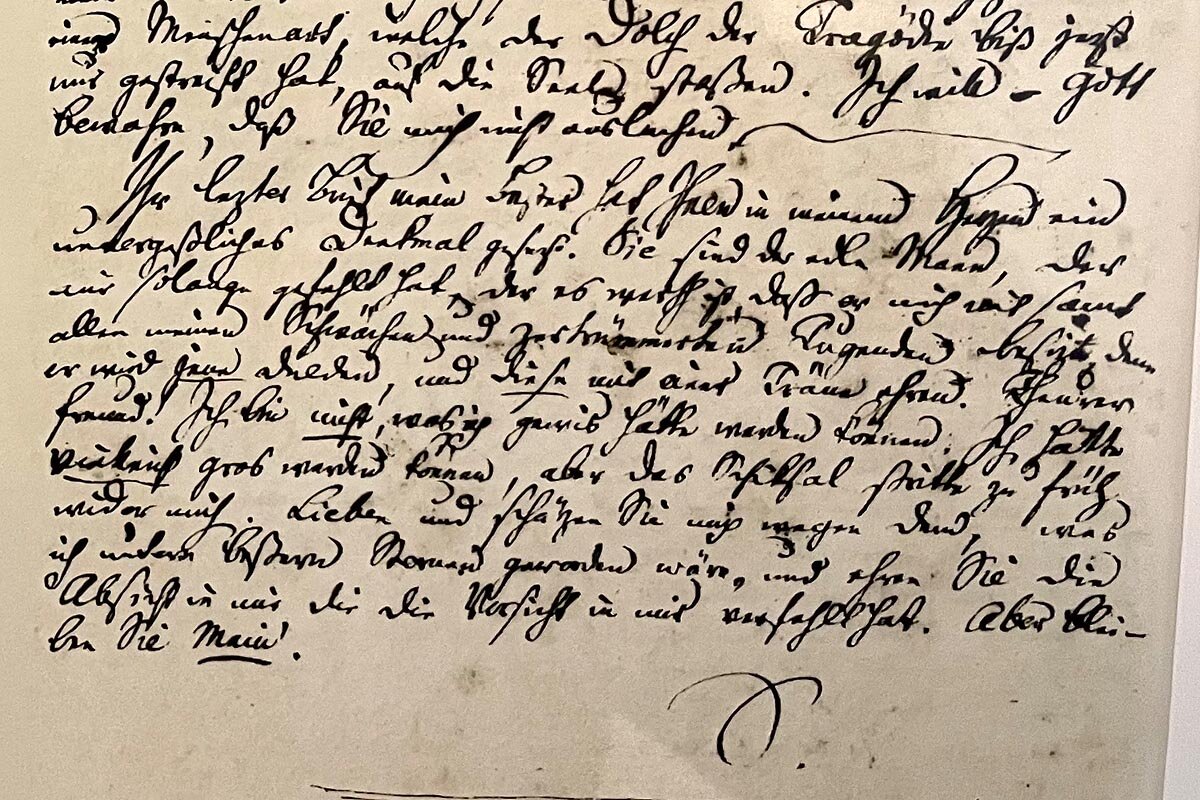 einer Menschenart, welche der Dolch der Tragödie biß jezt
nur gestreift hat, auf die Seele stoßen. Ich will – Gott
bewahre, daß Sie mich nicht auslachen.
Ihr lezter Brief mein Bester hat Ihnen in meinem Herzen ein
unvergeßliches Denkmal gesezt. Sie sind der edle Mann, der
mir solange gefehlt hat, der es werth ist, daß er mich mit samt
allen meinen Schwächen und zertrümmerten Tugenden besizt, denn
er wird jene dulden, und diese mit einer Träne ehren. Theurer
Freund! Ich bin nicht, was ich gewis hätte werden können. Ich hätte
vielleicht gros werden können, aber das Schiksal stritte zu früh
wider mich. Lieben und schäzen Sie mich wegen dem, was
ich unter beßern Sternen geworden wäre, und ehren Sie die
Absicht in mir die die Vorsicht in mir verfehlt hat. Aber blei-
ben Sie Mein!